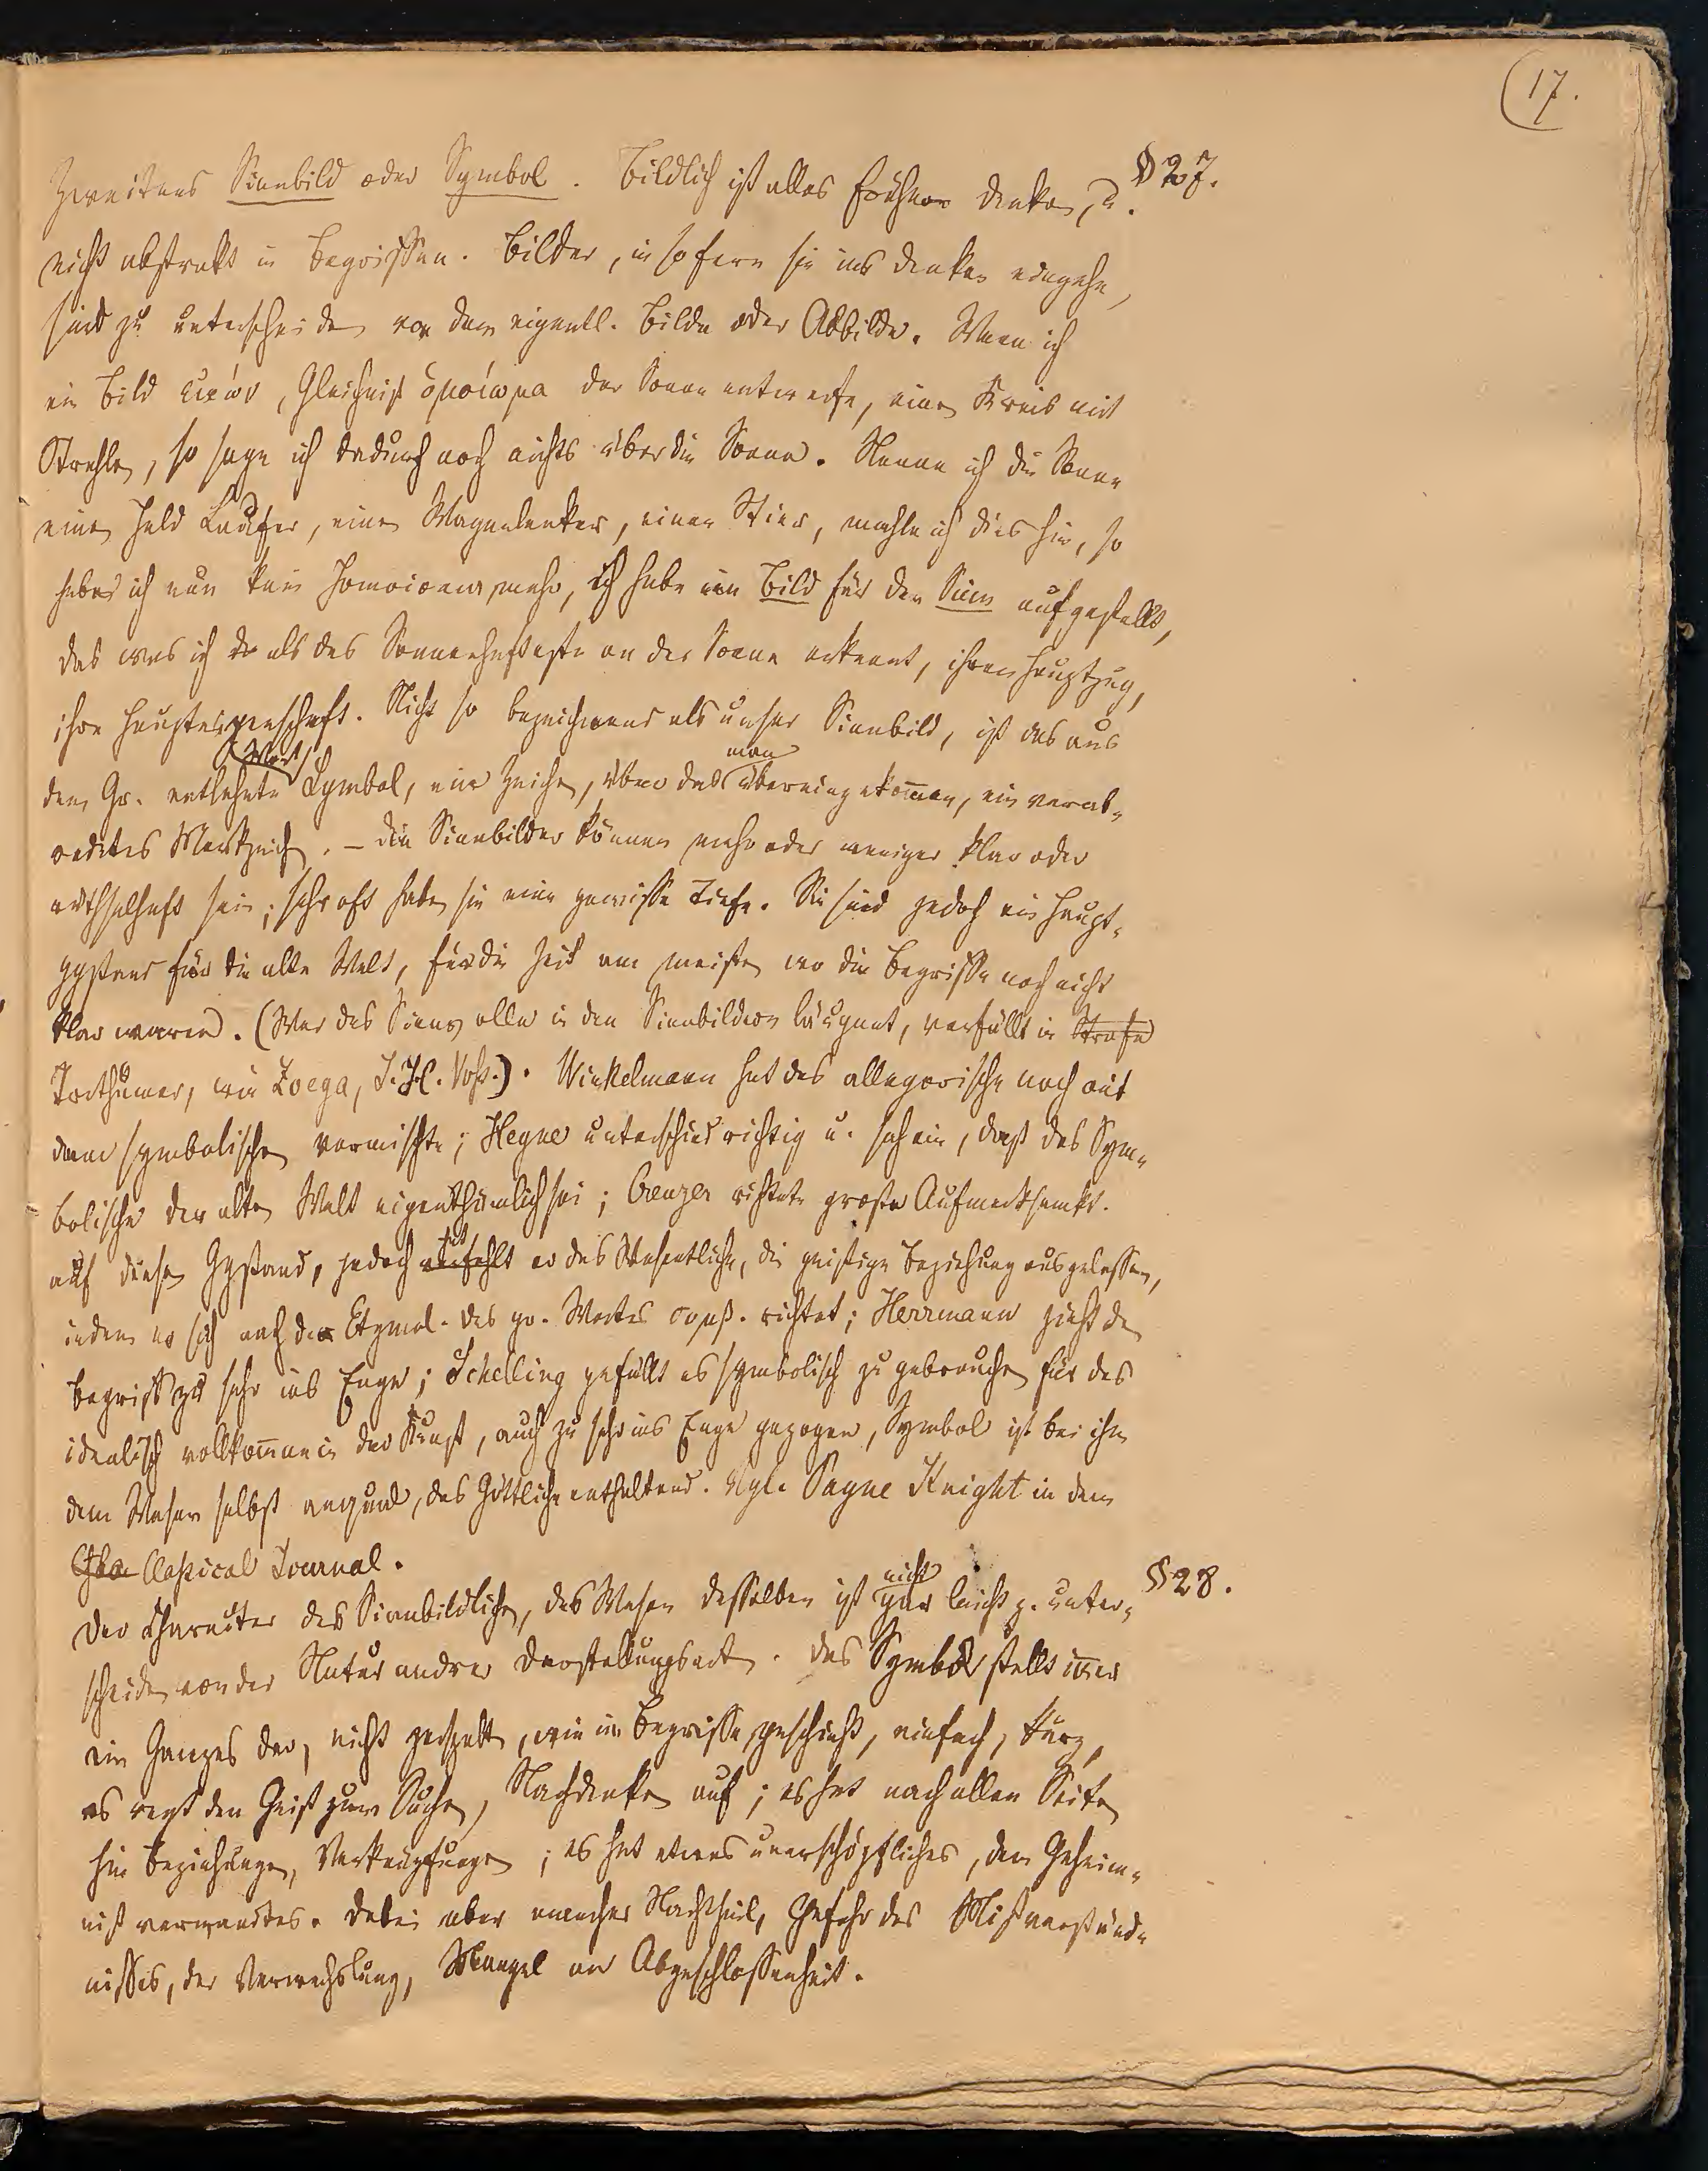 17.
Zweitens Sinnbild oder Symbol. Bildlich ist alles frühere Denken, u. § 27.
nicht abstrakt in Begriffen. Bilder, in so fern sie ins Denken eingehen,
sind zu unterscheiden von dem eigentl. Bilde oder Abbilde. Wenn ich
ein Bild εικών, Gleichniß ὁμοίωμα der Sonne entwerfe, einen Kreis mit
Strahlen, so sage ich dadurch noch nichts über die Sonne. Nenne ich die Sonne
einen Held Läufer, einen Wagenlenker, einen Stier, mahle ich dies hin, so
habe ich nun kein Homoioma mehr, ich habe ein Bild für den Sinn aufgestellt,
das was ich als das Sonnenhafteste an der Sonne erkannt, ihren Hauptzug,
ihre Haupteigenschaft. Nicht so bezeichnend als unser Sinnbild, ist das aus
dem Gr. entlehnte Wort Symbol, ein Zeichen, über das man übereingekommen, ein verab-
redetes Merkzeichen. – Die Sinnbilder können mehr oder weniger klar oder
räthselhaft sein; sehr oft haben sie eine gewisse Tiefe. Sie sind jedoch ein Haupt-
ggstand für die alte Welt, für die Zeit am meisten wo die Begriffe noch nicht
klar waren. (Wer das Sinnvolle in den Sinnbildern läugnet, verfällt in Strafe
Irrthümer, wie Zoega, J. H. Voß.). Winkelmann hat das allegorische noch mit
dem symbolischen vermischt; Heyne unterschied richtig u. sah ein, daß das Sym-
bolische der alten Welt eigenthümlich sei; Creuzer richtete große Aufmerksamkt.
auf diesen Ggstand, jedoch hat er das Wesentliche, die geistige Beziehung ausgelassen,
indem er sich nach der Etymol. des gr. Wortes συμβ. richtet; Herrmann zieht den
Begriff zu sehr ins Enge; Schelling gefällt es symbolisch zu gebrauchen für das
idealisch vollkommene in der Kunst, auch zu sehr ins Enge gezogen, Symbol ist bei ihm
dem Wesen selbst, das Göttliche enthaltend. Vgl. Payne Knight in dem
Classical Journal.
Der Charakter des Sinnbildlichen, das Wesen desselben ist nicht gar leicht z. unter- § 28.
scheiden von der Natur andrer Darstellungsart. Das Symbol stellt immer
ein Ganzes dar, nicht zerspalten, wie im Begriffe geschieht, einfach, kurz,
es regt den Geist zum Suchen, Nachdenken auf; es hat nach allen Seiten
hin Beziehungen, Verknüpfungen; es hat etwas unerschöpfliches, dem Geheim-
niß verwandtes. Dabei aber mancher Nachtheil, Gefahr des Mißverständ-
nisses, der Verwechslung, Mangel an Abgeschlossenheit.